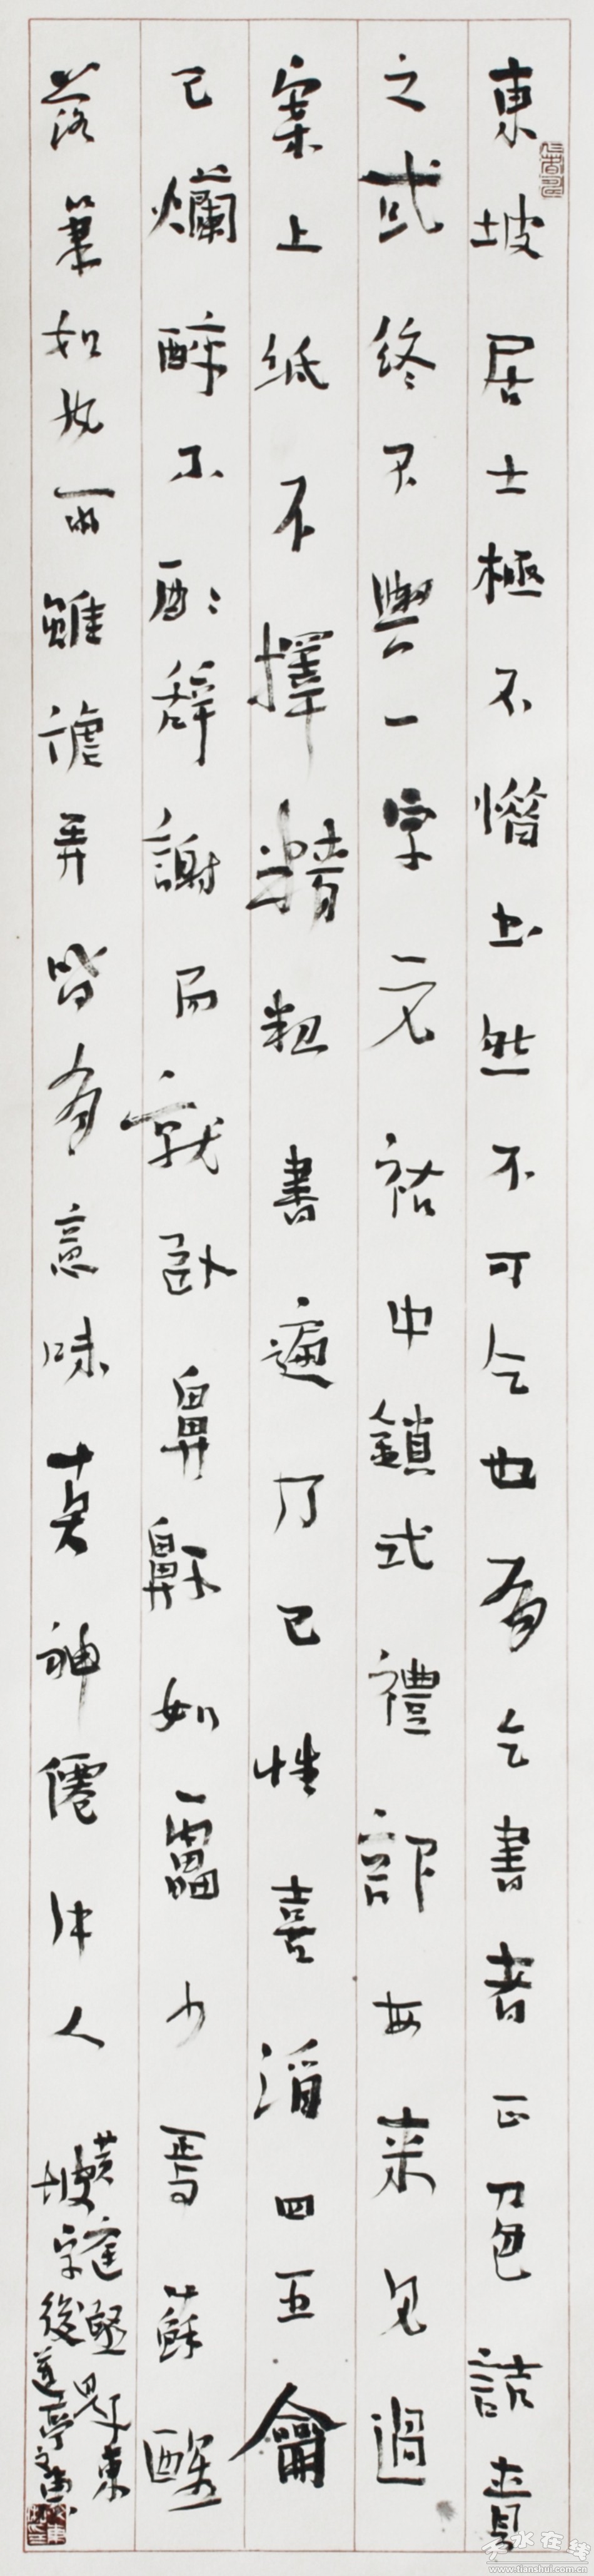 東坡居士極不惜書然不可乞也有乞書者正色詰責
之或終不與一字元祐中鎖試禮部每來見過
案上紙不擇精粗書遍乃已性喜酒四五龠
已爛醉不辭謝而就臥鼻鼾如雷少焉蘇醒
落筆如風雨雖謔弄皆有意味真神僊中人
黃庭堅題東
坡字後
天水在线
www.tianshui.com.cn